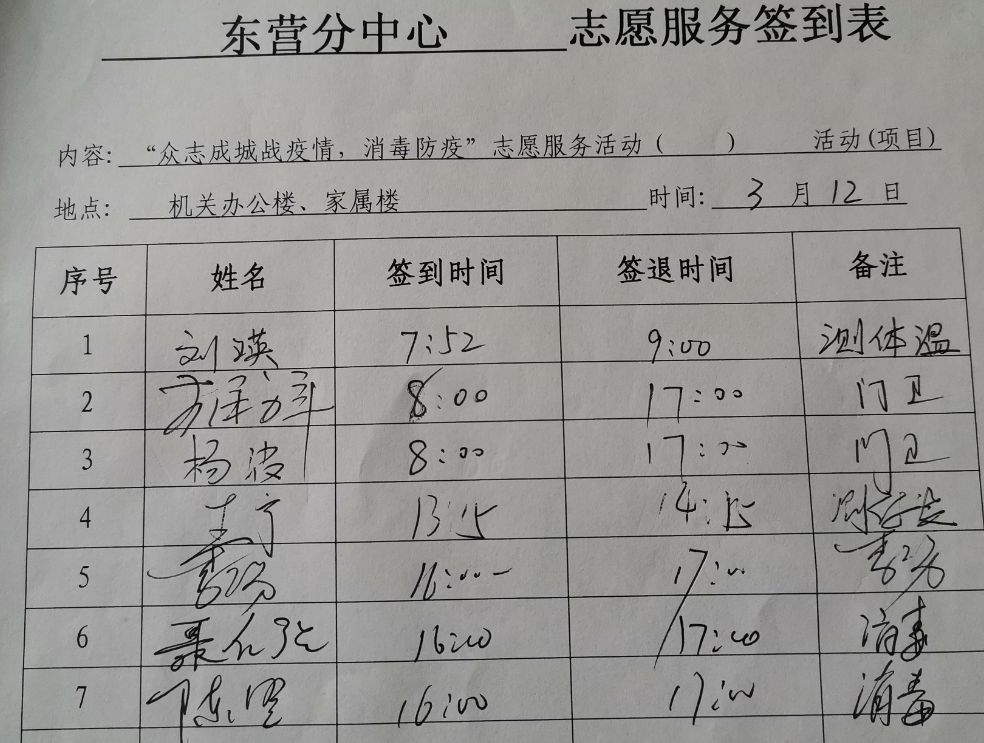 东营分中心 志愿服务签到表
内容: “众志成城战疫情，消毒防疫”志愿服务活动（ ） 活动(项目)
地点: 机关办公楼、家属楼 时间: 3 月 12 日
序号 姓名 签到时间 签退时间 备注
1 刘瑛 7:52 9:00 测体温
2 8:00 17:00 门卫
3 杨波 8:00 17:00 门卫
4 13:15 14:15
5 16:00 17:00
6 16:00 17:00 消毒
7 陈 16:00 17:00 消毒